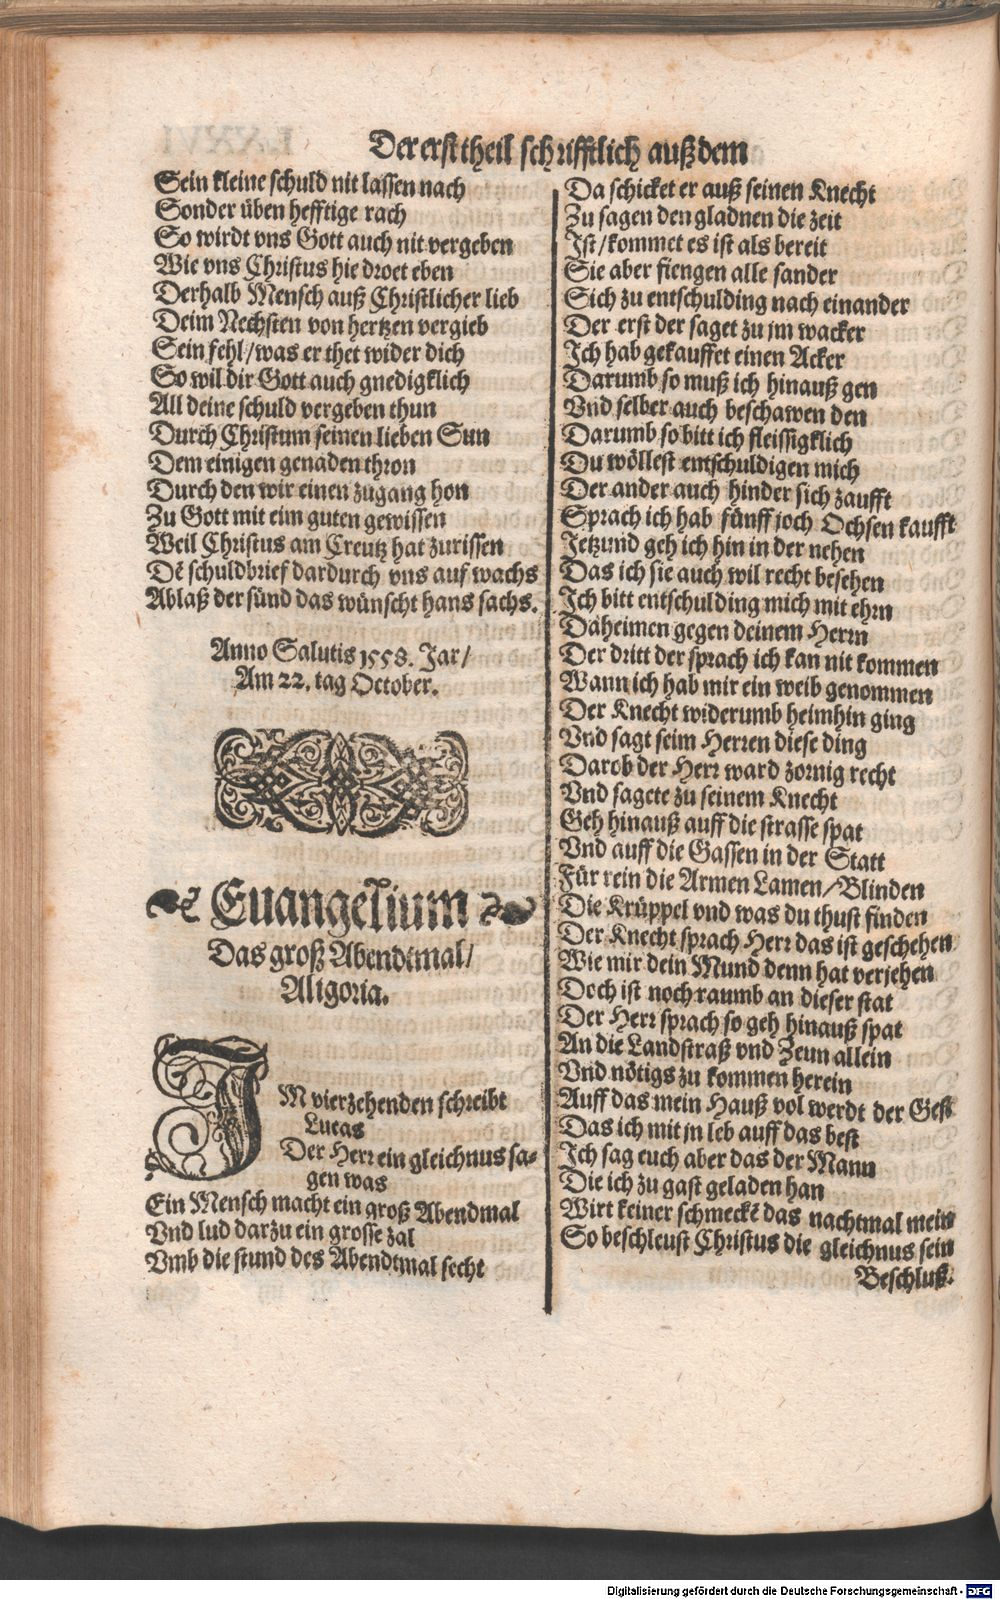 Der erst theil schrifftlich auß dem
Sein kleine schuld nit lassen nach
Sonder üben hefftige rach
So wirdt vns Gott auch nit vergeben
Wie vns Christus hie droet eben
Derhalb Mensch auß Christlicher lieb
Deim Nechsten von hertzen vergieb
Sein fehl/was er thet wider dich
So wil dir Gott auch gnedigklich
All deine schuld vergeben thun
Durch Christum seinen lieben Sun
Dem einigen genaden thron
Durch den wir einen zugang hon
Zu Gott mit eim guten gewissen
Weil Christus am Creutz hat zurissen
Dē schuldbrief dardurch vns auf wachs
Ablaß der sünd das wünscht hans sachs.
Anno Salutis 1558. Jar/
Am 22. tag October.
Euangelium
Das groß Abendtmal/
Aligoria.
IM vierzehenden schreibt
Lucas
Der Herr ein gleichnus sa-
gen was
Ein Mensch macht ein groß Abendmal
Vnd lud darzu ein grosse zal
Vmb die stund des Abendtmal secht
Da schicket er auß seinen Knecht
Zu sagen den gladnen die zeit
Ist/kommet es ist als bereit
Sie aber fiengen alle sander
Sich zu entschulding nach einander
Der erst der saget zu jm wacker
Ich hab gekauffet einen Acker
Darumb so muß ich hinauß gen
Vnd selber auch beschawen den
Darumb so bitt ich fleissigklich
Du wöllest entschuldigen mich
Der ander auch hinder sich zaufft
Sprach ich hab fünff joch Ochsen kaufft
Jetzund geh ich hin in der nehen
Das ich sie auch wil recht besehen
Ich bitt entschulding mich mit ehrn
Daheimen gegen deinem Herrn
Der dritt der sprach ich kan nit kommen
Wann ich hab mir ein weib genommen
Der Knecht widerumb heimhin ging
Vnd sagt seim Herren diese ding
Darob der Herr ward zornig recht
Vnd sagete zu seinem Knecht
Geh hinauß auff die strasse spat
Vnd auff die Gassen in der Statt
Für rein die Armen Lamen/Blinden
Die Krüppel vnd was du thust finden
Der Knecht sprach Herr das ist geschehen
Wie mir dein Mund denn hat verjehen
Doch ist noch raumb an dieser stat
Der Herr sprach so geh hinauß spat
An die Landstraß vnd Zeun allein
Vnd nötigs zu kommen herein
Auff das mein Hauß vol werdt der Gest
Das ich mit jn leb auff das best
Ich sag euch aber das der Mann
Die ich zu gast geladen han
Wirt keiner schmeckē das nachtmal mein
So beschleust Christus die gleichnus sein
Beschluß.
Digitalisierung gefördert durch die Deutsche Forschungsgemeinschaft - DFG